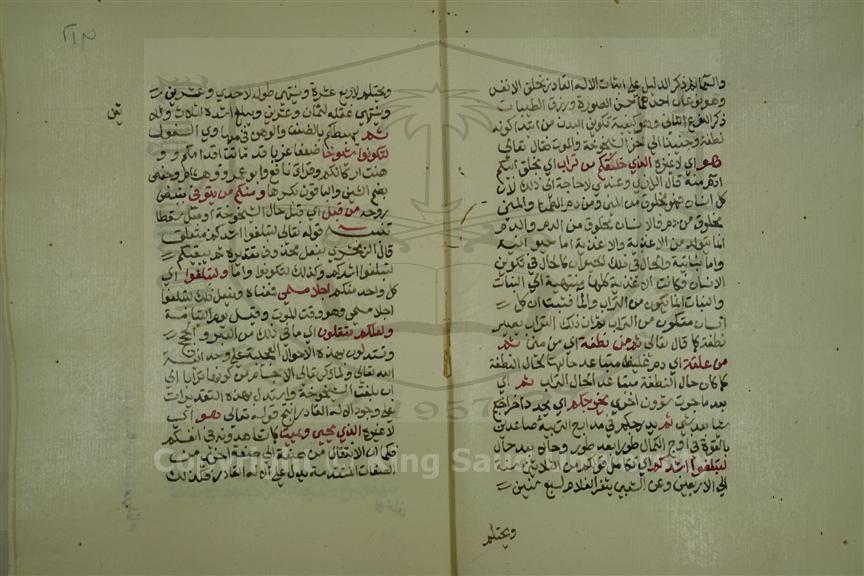 والسماء ثم ذكر الدليل على اثبات الاله القادر بخلق الانفس
وهو نوعان احدهما حسن الصورة ورزق الطيبات
ذكر النوع الثاني وهو كيفية تكوين البدن من ابتدا كونه
نطفة وجنينا الى آخر الشيخوخة والموت فقال تعالى
هو اي لا غيره الذي خلقكم من تراب اي بخلق ابيكم
ادم منه قال الرازي وعندي لا حاجة الى ذلك لان
كل انسان فهو مخلوق من المني ومن دم الطمث والمني
مخلوق من دم فالانسان مخلوق من الدم والدم
انما يتولد من الاغذية والاغذية اما حيوانية
واما نباتية والحال في ذلك الحيوان كالحال في تكوين
الانسان فكانت الاغذية كلها منتهية الى النبات
والنبات انما يكون من التراب والما فثبت ان كل
انسان متكون من التراب ثم ان ذلك التراب يصير
نطفة كما قال تعالى ثم من نطفة اي من مني ثم
من علقة اي دم غليظ متباعد حالها لحال النطفة
كما كان حال النطفة متباعدا لحال التراب ثم اي
بعد ما جرت شؤون اخرى يخرجكم اي يجدد اخراجكم
شيأ بعد شي ثم يدرجكم في مدارج التربية صاعدين
بالقوة في اوج الكمال طورا بعد طور وحالا بعد حال
لتبلغوا اشدكم اي تكامل قوتكم من الثلاثين سنة
الى الاربعين وعن الشعبي يثغر الغلام لسبع سنين
ويحتلم
ويحتلم لاربع عشرة وينتهي طوله لاحدى وعشرين
وينتهي عقله لثمان وعشرين ويبلغ اشده لثلاث وثلاثين
ثم يهبطكم بالضعف والوهن في مهاوي السفول
لتكونوا شيوخا ضعفا غربا قد ماتت اقدامكم و
وهنت اركانكم وقراءة نافع وابو عمرو وهشام وحفص
بضم الشين والباقون بكسرها ومنكم من يتوفى بقبض
روحه من قبل اي قبل حال الشيخوخة او قبل سقطا
تنبيه قوله تعالى لتبلغوا اشدكم متعلق
قال الزمخشري بفعل محذوف تقديره ثم يبقيكم
لتبلغوا اشدكم وكذلك لتكونوا واما ولتبلغوا اي
كل واحد منكم اجلا مسمى فمعناه ويفعل ذلك لتبلغوا
اجلا مسمى وهو وقت الموت وقيل يوم القيامة
ولعلكم تعقلون اي ما في ذلك من العبر والحجج
وتستدلون بهذه الاحوال العجيبة على وحدانية
الله تعالى ولما ذكر تعالى الانتقال من كونها ترابا الى
ان بلغت الشيخوخة واستدل بهذه التغييرات
على وجود الاله القادر انتج قوله تعالى هو اي
لا غيره الذي يحيي ويميت كما تشاهدونه في انفسكم
فكما ان الانتقال من صفة الى صفة اخرى من
الصفات المتقدمة يدل على الاله القادر فكذلك
1957